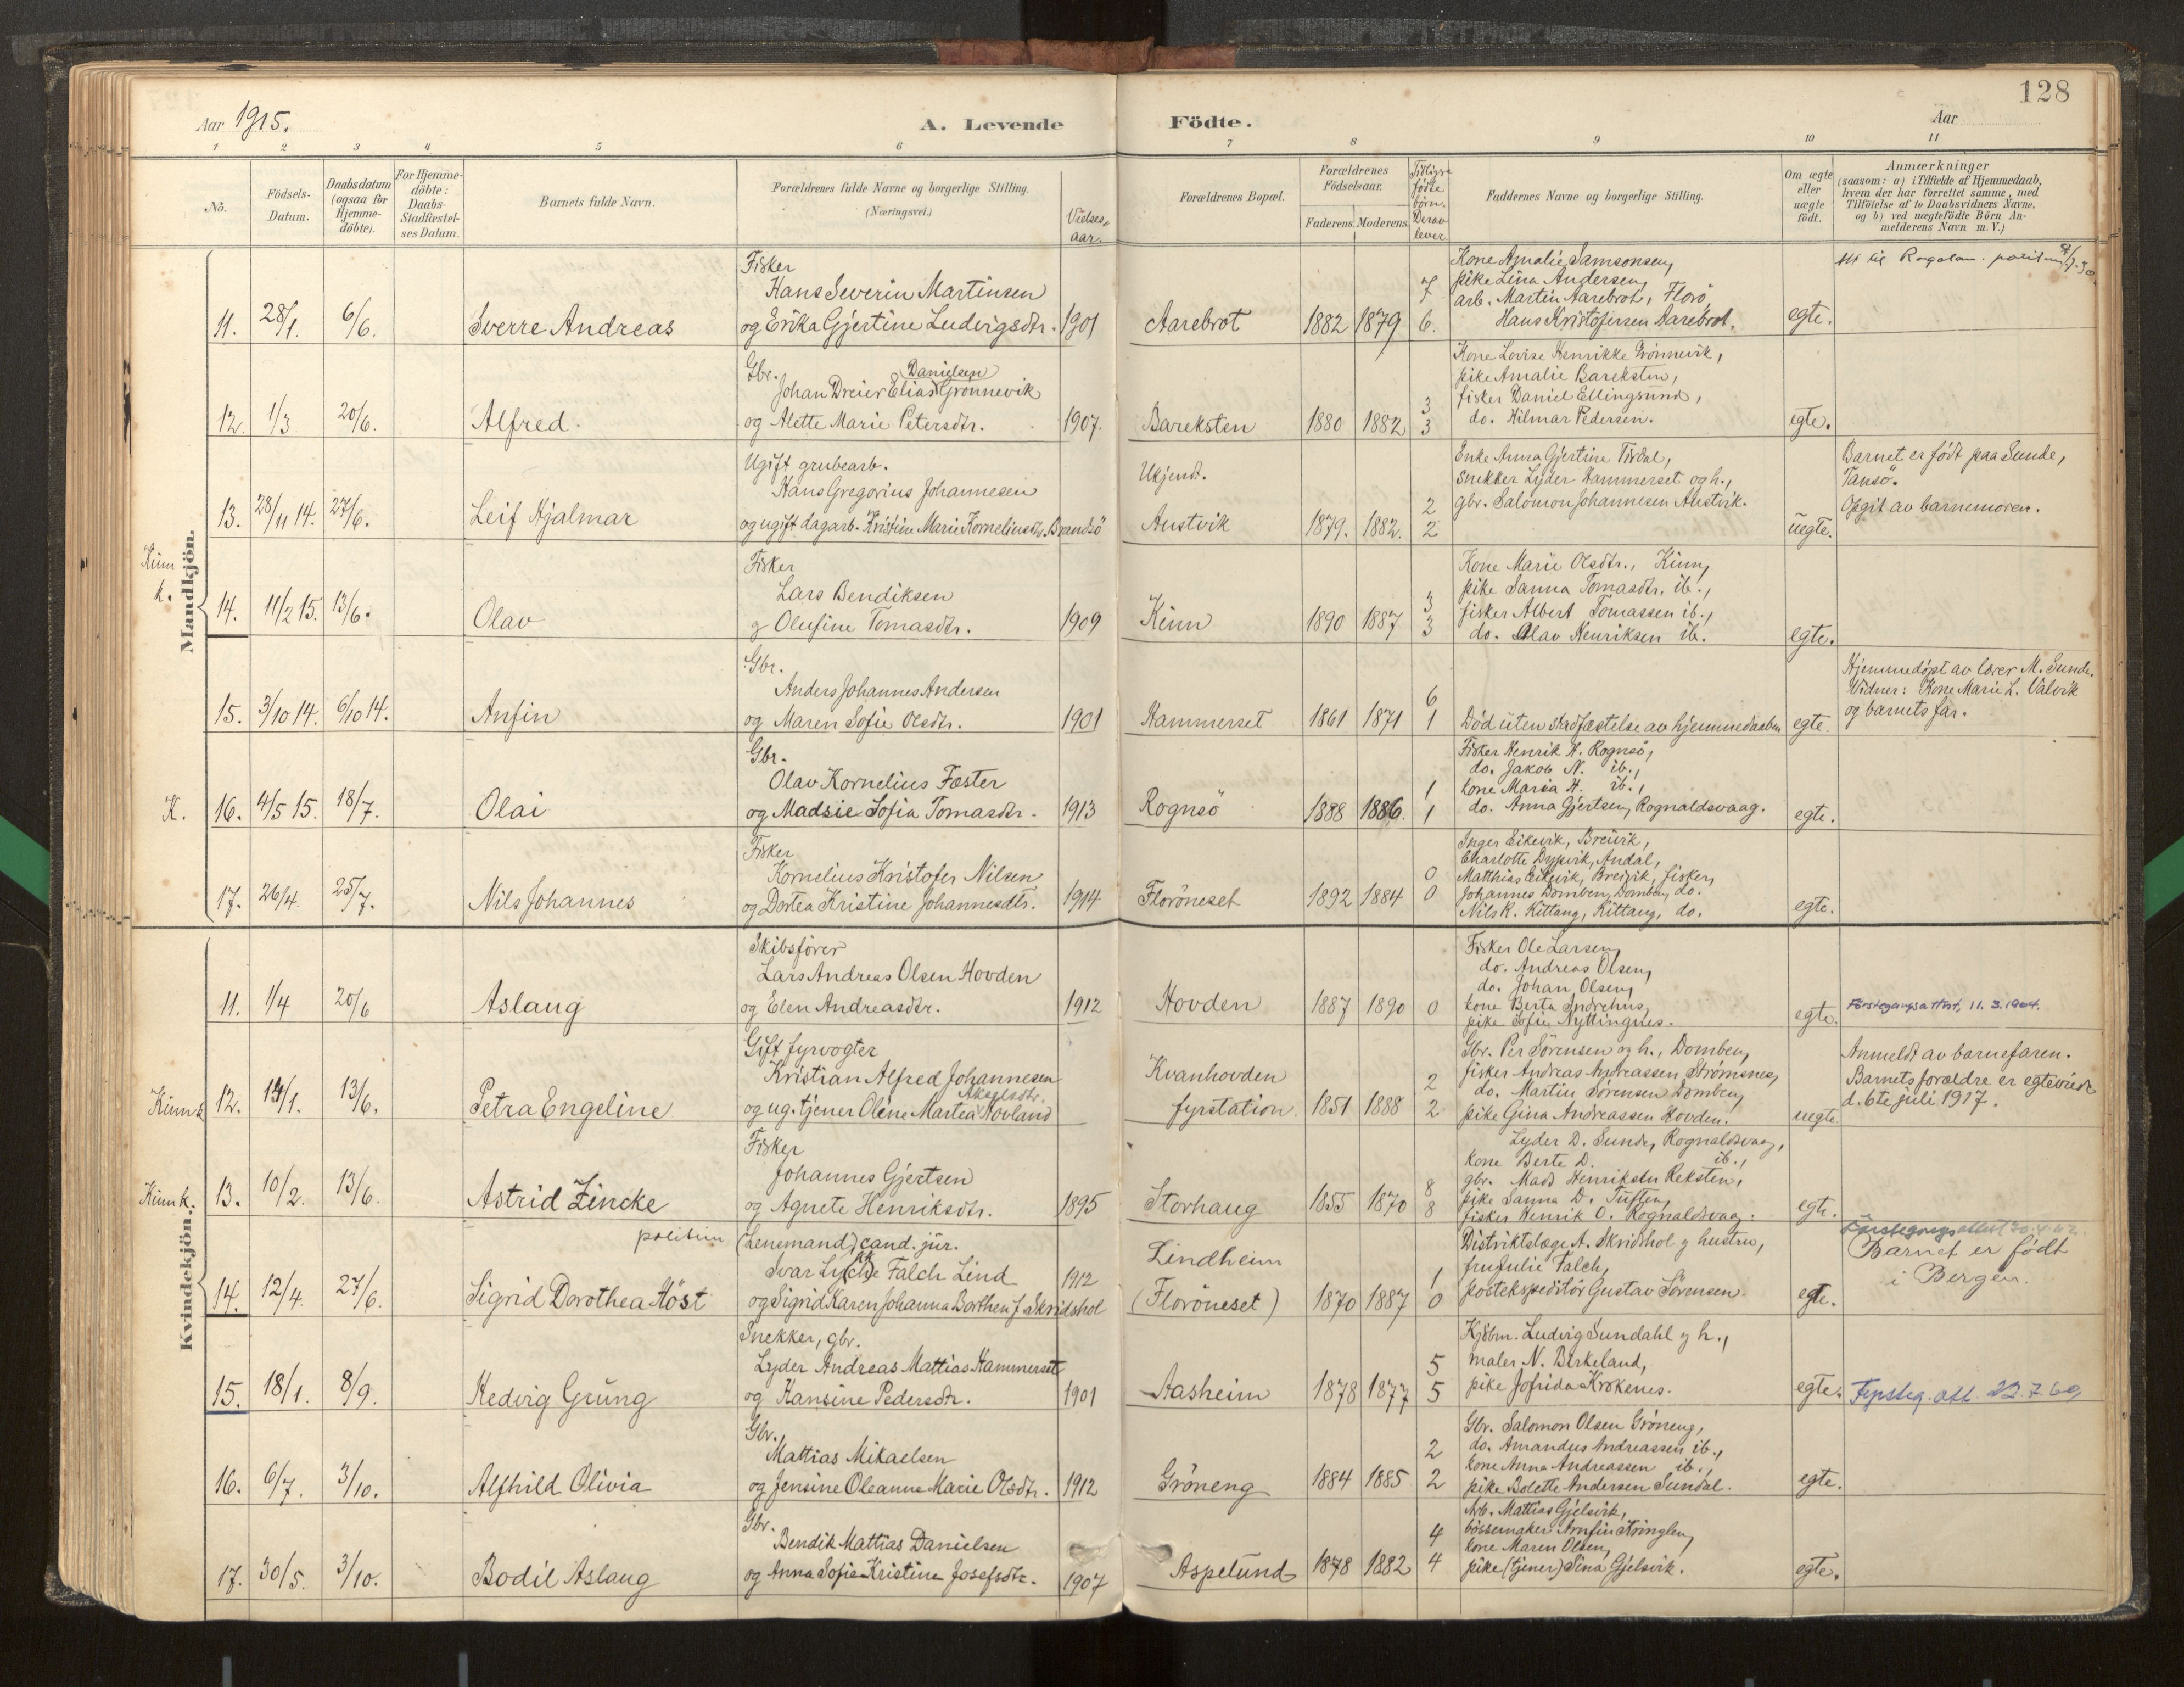 128
Aar 1915.
A. Levende Födte.
Aar
1 2 3 4 5 6 7 8 9 10 11
No.
Födsels-Datum.
Daabsdatum (ogsaa for Hjemmedöbte).
For Hjemmedöbte: Daabs-Stadfæstelses Datum.
Barnets fulde Navn.
Forældrenes fulde Navne og borgerlige Stilling.
(Næringsvei.)
Vielses-aar.
Forældrenes Bopæl.
Forældrenes Födselsaar.
Faderens. Moderens.
Tidligere fødte børn. Derav lever
Faddernes Navne og borgerlige Stilling.
Om ægte eller uægte födt.
Anmærkninger
(saasom: a) i Tilfælde af Hjemmedaab, hvem der har forrettet samme, med Tilföielse af to Daabsvidners Navne, og b) ved uægtefödte Börn Anmelderens Navn m. V.)
Mandkjön.
Fisker
Hans Severin Martinsen
11. 28/1. 6/6. Sverre Andreas og Erika Gjertine Ludvigsdtr. 1901 Aarebrot 1882 1879 7 6.
Kone Amalie Samsonsen,
pike Lina Andersen,
arb. Martin Aarebrot, Florö,
Hans Kristofersen Aarebrot.
egte.
Att til Rogalan. politum
Gbr. Danielsen
Johan Dreier Elias Grönnevik
12. 1/3 20/6. Alfred. og Alette Marie Petersdtr. 1907. Bareksten 1880 1882 3 3
Kone Lovise Henrikke Grönnevik,
pike Amalie Bareksten,
fisker Daniel Ellingsund,
do. Hilmar Pedersen.
egte.
Ugift grubearb.
Hans Gregorius Johannesen
13. 28/11 14. 27/6. Leif Hjalmar og ugift dagarb. Kristine Marie Korneliusdtr. Brandsö
Ukjendt.
Austvik 1879. 1882. 2 2
Enke Anna Gjertine Tirdal,
snikker Lyder Hammerset og h.,
gbr. Salomon Johannesen Austvik.
uegte.
Barnet er födt paa Sunde,
Tansö.
Opgit av barnemoren.
Kinn k.
Fisker
Lars Bendiksen
14. 11/2 15. 13/6. Olav g Olufine Tomasdtr. 1909 Kinn 1890 1887 3 3
Kone Marie Olsdtr., Kinn,
pike Sanna Tomasdtr. ib.,
fisker Albert Tomassen ib.,
do. Olav Henriksen ib.
egte.
Gbr.
Anders Johannes Andersen
15. 3/10 14. 6/10 14. Anfin og Maren Sofie Olsdtr. 1901 Hammerset 1861 1871 6 1
Död uten stadfæstelse av hjemmedaaben
egte.
Hjemmedöpt av lærer M. Sunde.
Vidner: Kone Marie L. Valvik
og barnets far.
K.
Gbr.
Olav Kornelius Fæster
16. 4/5 15. 18/7. Olai og Madsie Sofia Tomasdtr. 1913 Rognsö 1888 1886. 1 1
Fisker Henrik H. Rognsö,
do. Jakob N. ib.,
kone Maria H. ib.,
do. Anna Gjertsen, Rognaldsvaag.
egte.
Fisker
Kornelius Kristofer Nilsen
17. 26/4. 25/7. Nils Johannes og Dortea Kristine Johannesdtr. 1914 Floröneset 1892 1884 0 0
Inger Eikevik, Breivik,
Charlotte Dypvik, Andal,
Matthias Eikevik, Breivik, fisker,
Johannes Domben, Domben, do.
Nils K. Kittang, Kittang, do.
egte.
Kvindekjön.
Skibsförer
Lars Andreas Olsen Hovden
11. 1/4 20/6 Aslaug og Elen Andreasdtr. 1912 Hovden 1887 1890 0
Fisker Ole Larsen,
do. Andreas Olsen,
do. Johan Olsen,
kone Berta Indrehus,
pike Sofie Nyttingnes.
egte.
Förstegangsattest, 11. 3. 1964.
Kinn k
Gift fyrvogter
Kristian Alfred Johannesen
Akselsdtr.
12. 14/1. 13/6. Petra Engeline og ug. tjener Oline Martea Hovland
Kvanhovden
fyrstation. 1851 1888 2 2
Gbr. Per Sörensen og h., Domben,
fisker Andreas Andreassen Strömsnes,
do. Martin Sörensen Domben,
pike Gina Andreassen Hovden.
uegte.
Anmeldt av barnefaren.
Barnets forældre er egteviede
d. 6te juli 1917.
Kinn k.
Fisker
Johannes Gjertsen
13. 10/2. 13/6. Astrid Zincke og Agnete Henriksdtr. 1895 Storhaug 1855 1870 8 8
Lyder D. Sunde, Rognaldsvaag,
kone Berte D. ib.,
gbr. Mads Henriksen Reksten,
pike Sanna D. Tuften,
fisker Henrik O. Rognaldsvaag.
egte.
politim (Lensmand) cand. jur.
Ivar Lyche Falch Lind
14. 12/4. 27/6. Sigrid Dorothea Höst og Sigrid Karen Johanna Borthen f. Skridshol 1912
Lindheim
(Floröneset) 1870 1887 1 0
Distriktslæge A. Skridshol g hustru,
fru Julie Falch,
postekspeditör Gustav Sörensen.
egte.
Förstegangsattest
Barnet er födt
i Bergen.
Snekker, gbr.
Lyder Andreas Mattias Hammerset
15. 18/1. 8/9. Hedvig Grüng og Hansine Pedersdtr. 1901 Aasheim 1878 1877 5 5
Kjöbm. Ludvig Sundahl g h.,
maler N. Birkeland,
pike Jofrida Krokenes.
egte.
Fersteg. att. 22.7.60
Gbr.
Mattias Mikaelsen
16. 6/7. 3/10. Alfhild Olivia og Jensine Oleanne Marie Olsdtr. 1912 Gröneng 1884 1885 2 2
Gbr. Salomon Olsen Gröneng,
do. Amandus Andreassen ib.,
kone Anna Andreassen ib.,
pike Bolette Andersen Sundal.
egte.
Gbr.
Bendik Mattias Danielsen
17. 30/5. 3/10. Bodil Aslaug og Anna Sofie Kristine Josefsdtr. 1907 Aspelund 1878 1882 4 4
Arb. Mattias Gjelsvik,
bössemaker Arnfin Kvinglen,
kone Maren Olsen,
pike (tjener) Sina Gjelsvik.
egte.